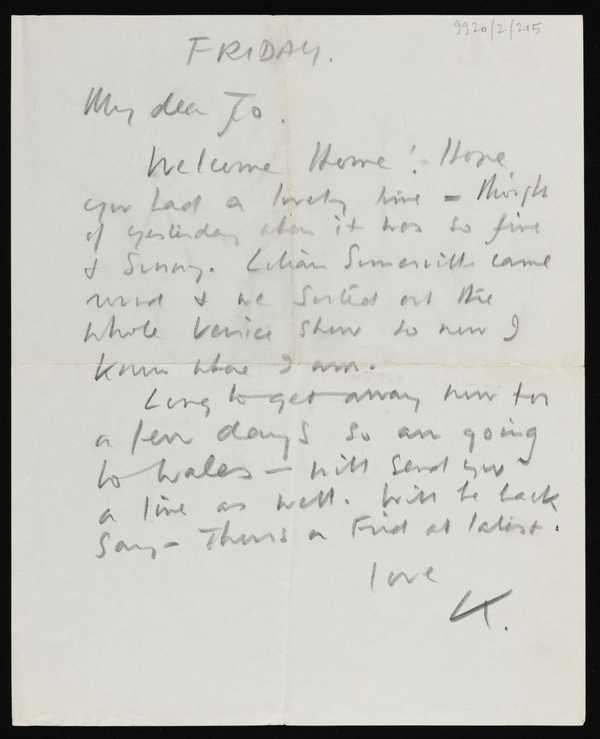 9920/2/215
FRIDAY.
My dear Jo.
Welcome Home! Hope
you had a lovely time – thought
of yesterday when it was so fine
& Sunny. Lilian Somerville came
round & we sorted out the
whole Venice show so now I
know where I am.
Long to get away now for
a few days so am going
to Wales – will send you
a line as well. Will be back
say – Thurs or Frid at latest.
love
K.